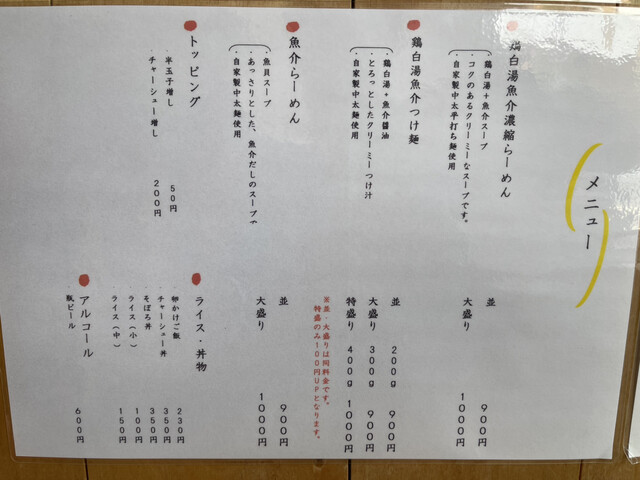 メニュー
鶏白湯魚介濃縮らーめん
・鶏白湯+魚介スープ
・コクのあるクリーミーなスープです。
・自家製中太平打ち麺使用
並 900円
大盛り 1000円
鶏白湯魚介つけ麺
・鶏白湯+魚介醤油
・とろっとしたクリーミーつけ汁
・自家製中太麺使用
並 200g 900円
大盛り 300g 900円
特盛り 400g 1000円
※並・大盛りは同料金です。
特盛のみ100円UPとなります。
魚介らーめん
・魚貝スープ
・あっさりとした、魚介だしのスープで
・自家製中太麺使用
並 900円
大盛り 1000円
トッピング
・半玉子増し 50円
・チャーシュー増し 200円
ライス・丼物
・卵かけご飯 230円
・チャーシュー丼 350円
・そぼろ丼 350円
・ライス(小) 100円
・ライス(中) 150円
アルコール
・瓶ビール 600円